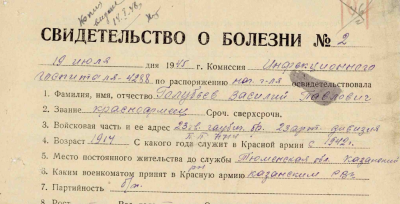 Копия
выдана
14.7.48.
СВИДЕТЕЛЬСТВО О БОЛЕЗНИ № 2
19 июля дня 1945 г. Комиссия Инфекционного
госпиталя-4288 по распоряжению нач. г-ля освидетельствовала
1. Фамилия, имя, отчество Голубьев Василий Павлович
2. Звание красноармеец Срок. сверхсрочн.
3. Войсковая часть и ее адрес 23 гв. гаубич. бр. 23 арт. дивизия
4. Возраст 1914 С какого года служит в Красной армии с 1942 г.
5. Место постоянного жительства до службы Тюменская обл. Казанский
6. Каким военкоматом принят в Красную армию казанским РВК
7. Партийность б/п.